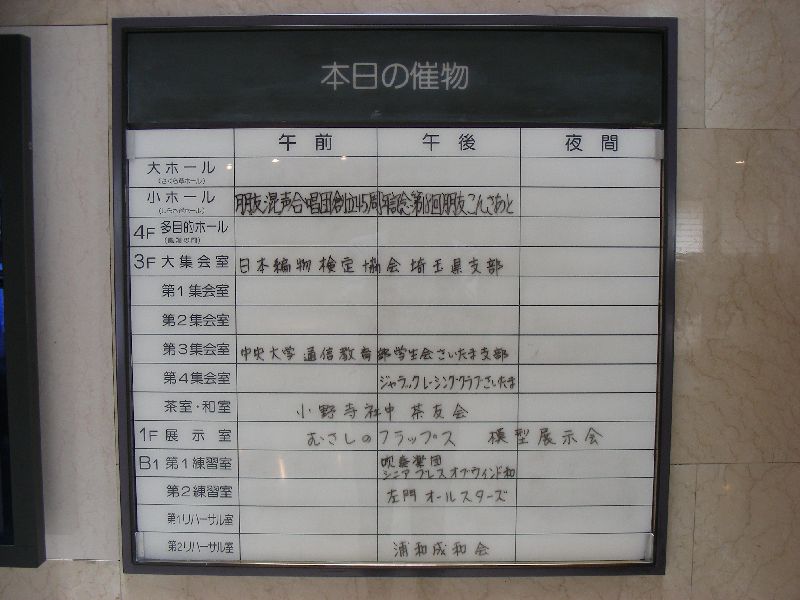 本日の催物
午前 午後 夜間
大ホール
小ホール 朋友混声合唱団創立45周年記念第18回朋友こんさあと
4F 多目的ホール
3F 大集会室 日本編物検定協会埼玉県支部
第1集会室
第2集会室
第3集会室 中央大学通信教育部学生会さいたま支部
第4集会室 ジャラックレーシングクラブさいたま
茶室・和室 小野寺社中 茶友会
1F 展示室 むさしのフラップス 模型展示会
B1 第1練習室 吹奏楽団
シニアブレスオブウィンド和
第2練習室 左門オールスターズ
第1リハーサル室
第2リハーサル室 浦和成和会